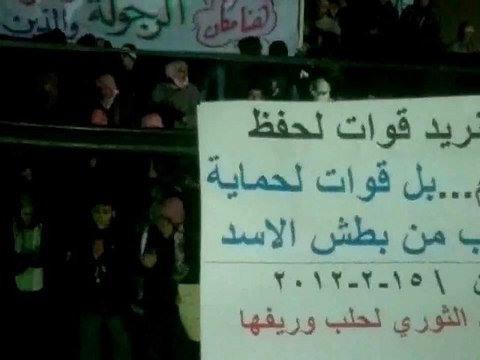 هنا مكان الرجولة والدين
نريد قوات لحفظ
...بل قوات لحماية
من بطش الاسد
١٥-٢-٢٠١٢
الثوري لحلب وريفها